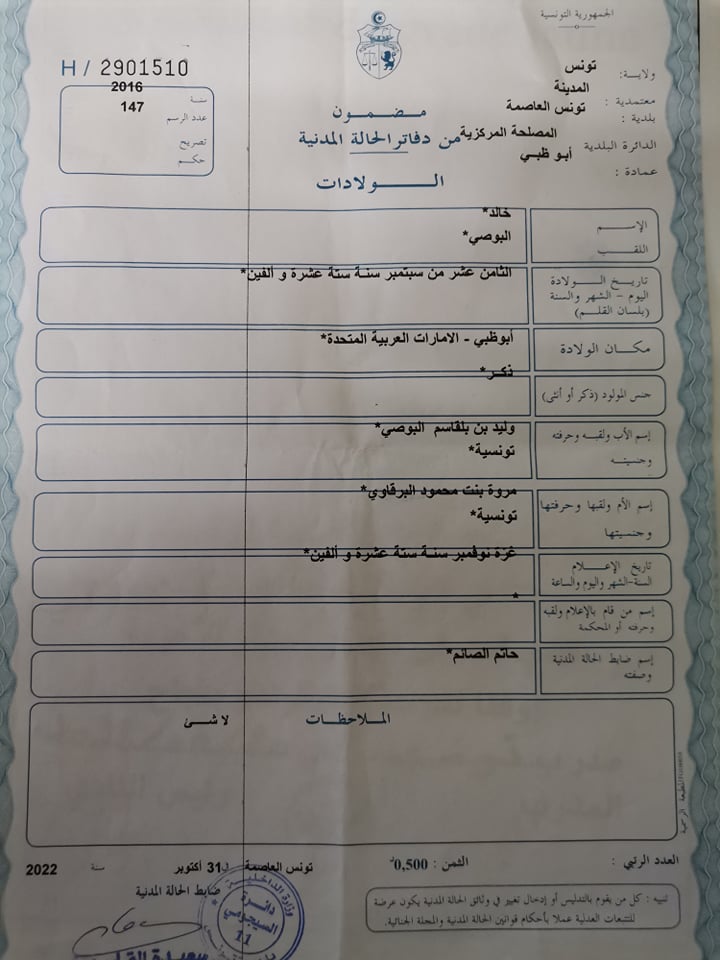 الجمهورية التونسية
H / 2901510
ولاية: تونس
معتمدية : المدينة
بلدية : تونس العاصمة
الدائرة البلدية المصلحة المركزية
عمادة : أبو ظبي
سنة 2016
عدد الرسم 147
تصريح
حكم
مضمون
من دفاتر الحالة المدنية
الولادات
الإسم خالد*
اللقب البوصي*
تاريخ الولادة الثامن عشر من سبتمبر سنة ستة عشرة و ألفين*
اليوم - الشهر والسنة
(بلسان القلم)
مكان الولادة أبوظبي - الامارات العربية المتحدة*
جنس المولود (ذكر أو أنثى) ذكر*
إسم الأب ولقبه وحرفته وليد بن بلقاسم البوصي*
وجنسيته تونسية*
إسم الأم ولقبها وحرفتها مروة بنت محمود البرقاوي*
وجنسيتها تونسية*
تاريخ الإعلام غرة نوفمبر سنة ستة عشرة و ألفين*
السنة-الشهر واليوم والساعة
إسم من قام بالإعلام ولقبه *
وحرفته أو المحكمة
إسم ضابط الحالة المدنية حاتم الصائم*
وصفته
الملاحظات لا شئ
المطبعة الرسمية
العدد الرتبي : الثمن : 0,500د
تونس العاصمة ل31 أكتوبر سنة 2022
ضابط الحالة المدنية
تنبيه : كل من يقوم بالتدليس أو إدخال تغيير في وثائق الحالة المدنية يكون عرضة
للتتبعات العدلية عملا بأحكام قوانين الحالة المدنية والمجلة الجنائية.
وزارة الداخلية
دائرة
السيجومي
11